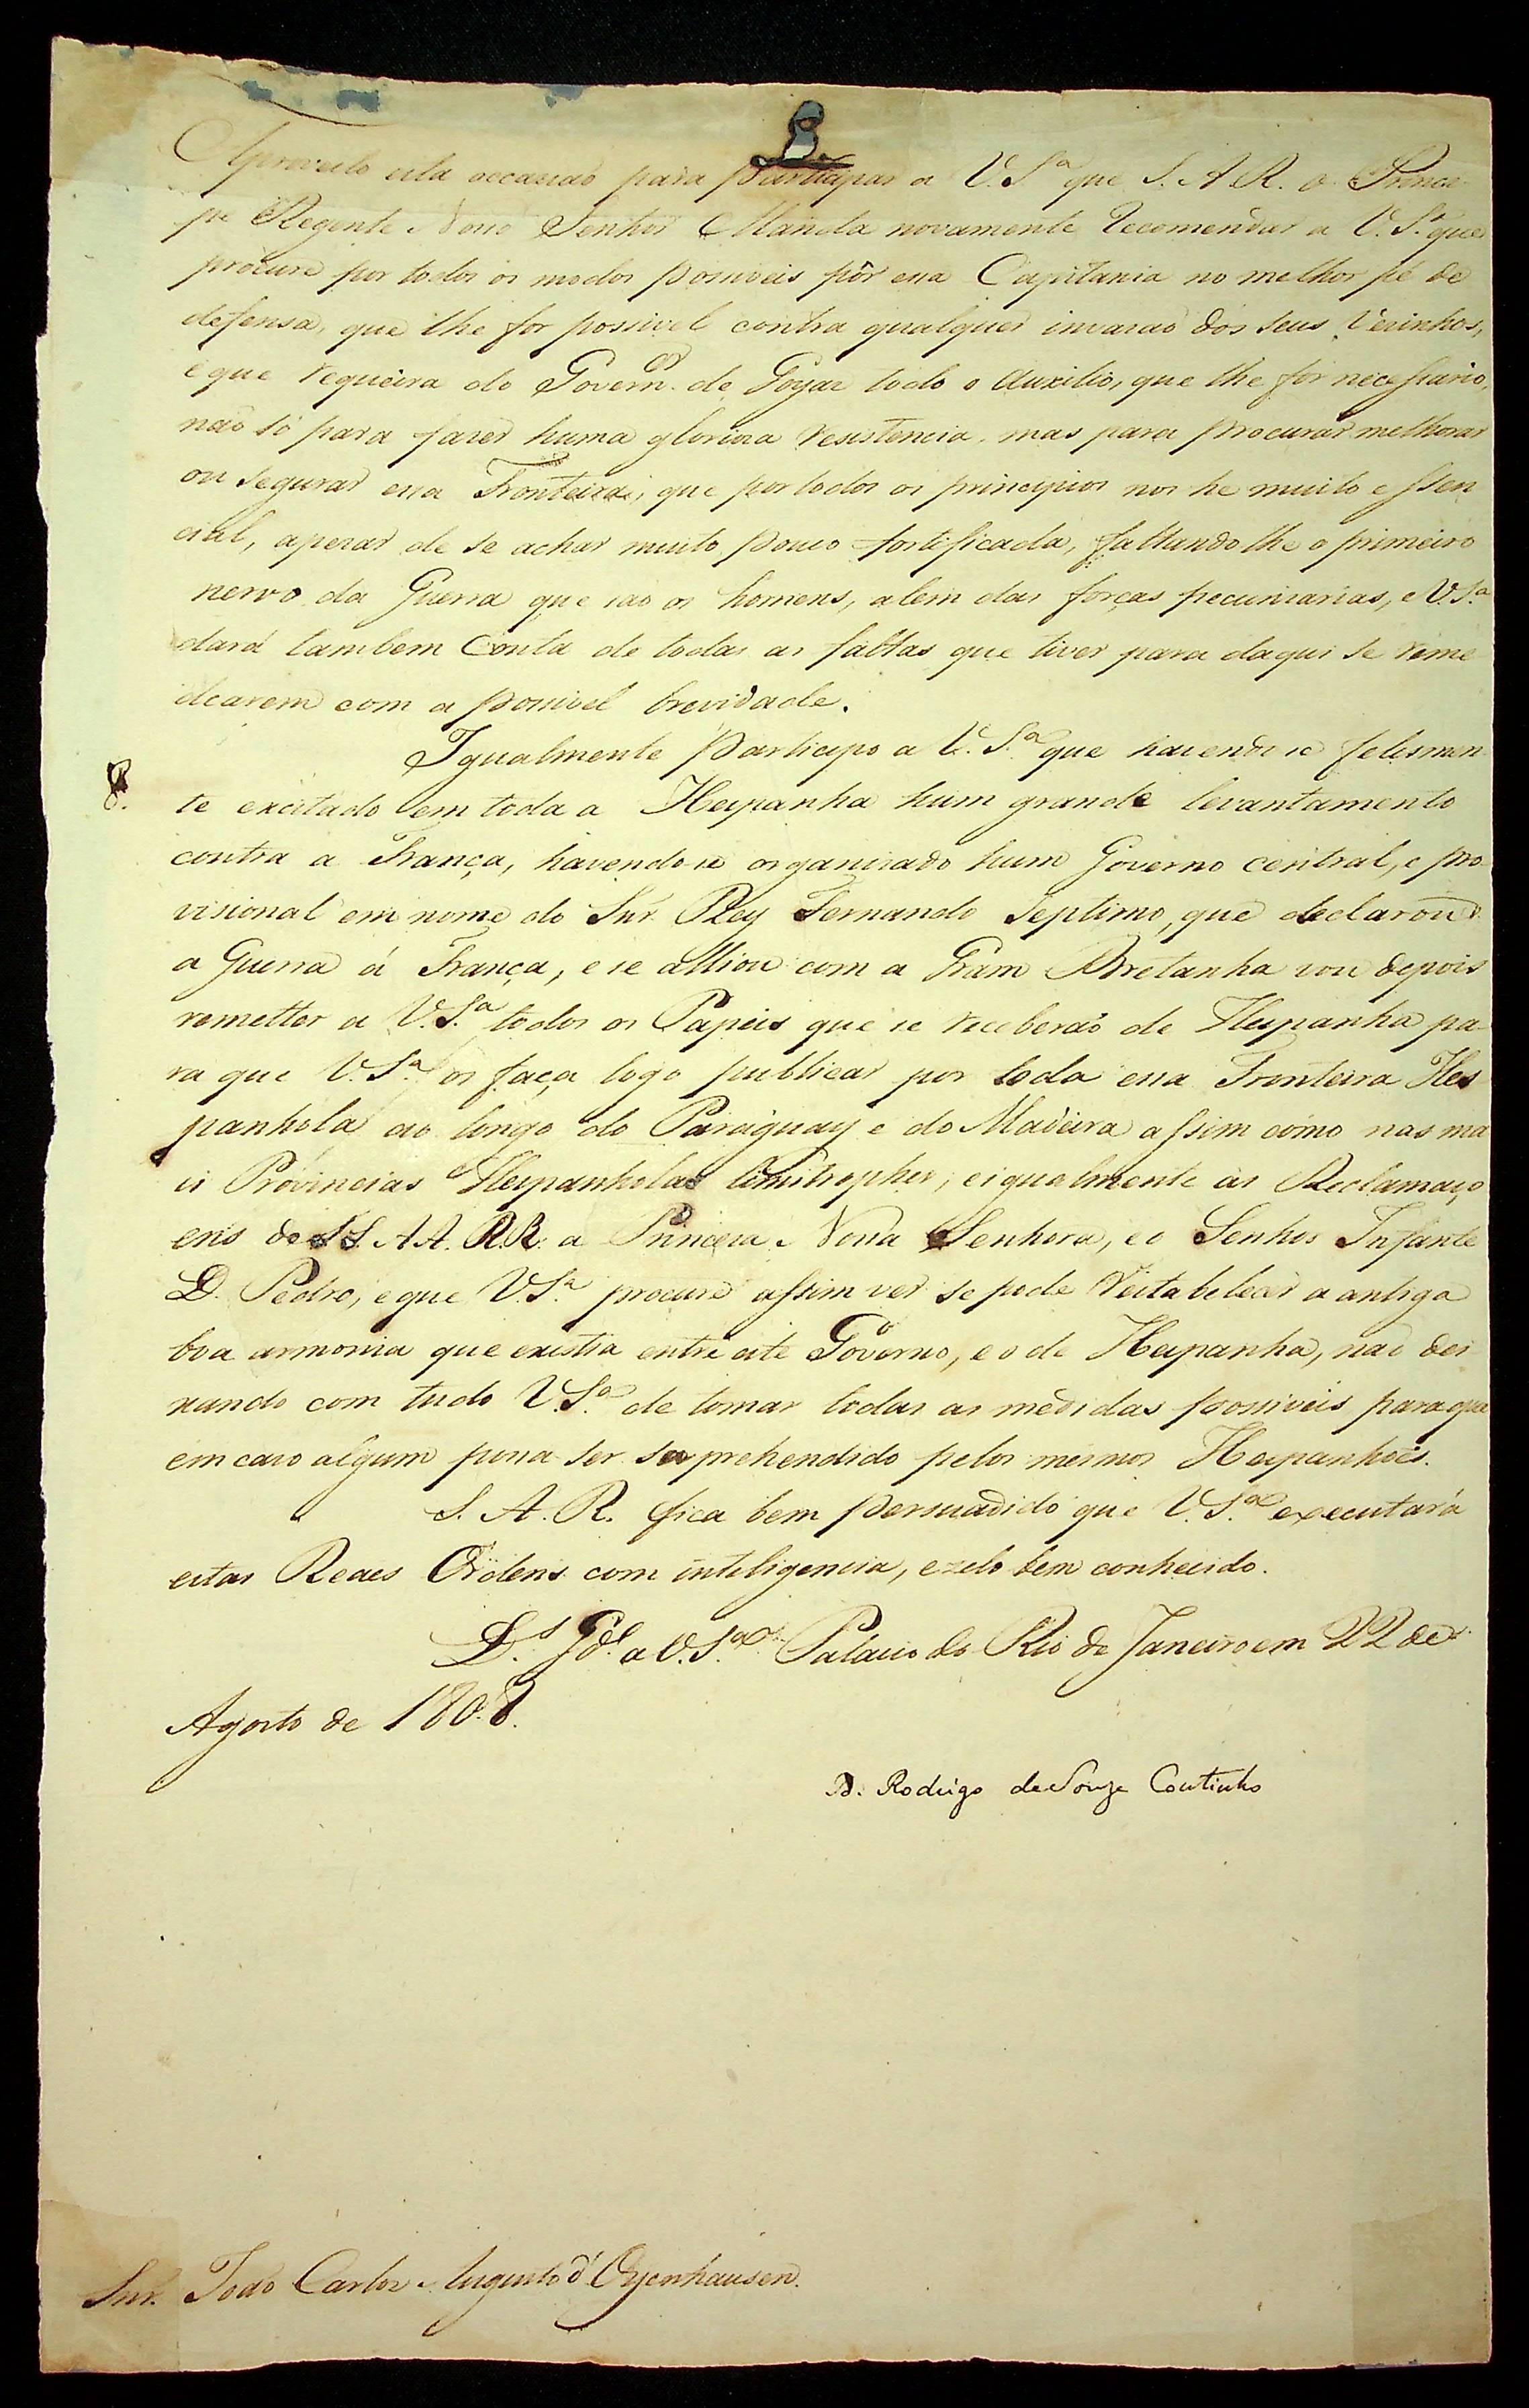 8
Aproveito esta occasiaõ para participar a V. S.ª que S. A. R. o Princi-
pe Regente Nosso Senhor Manda novamente recomendar a V. S.ª que
procure por todos os modos possiveis pôr essa Capitania no melhor pé de
defensa, que lhe for possivel contra qualquer invasaõ dos seus Vezinhos,
e que requeira do Govern.or de Goyaz todo o auxilio, que lhe for necessario,
naõ só para fazer huma gloriosa resistencia, mas para procurar melhorar
ou segurar essa Fronteira, que por todos os principios nos he muito essen
cial, apezar de se achar muito pouco fortificada, faltando lhe o primeiro
nervo da Guerra que saõ os homens, alem das forças pecuniarias, e V. S.ª
dará tambem conta de todas as faltas que tiver para daqui se reme
dearem com a possivel brevidade.
Igualmente participo a V. S.ª que havendo se felismen
8. te excitado em toda a Hespanha hum grande levantamento
contra a França, havendo se organisado hum Governo central, e pro-
visional em nome do Snr. Rey Fernando Septimo, que declarou
a Guerra á França, e se alliou com a Gram Bretanha vou depois
remetter a V. S.ª todos os Papeis que se receberaõ de Hespanha pa-
ra que V. S.ª os faça logo publicar por toda essa Fronteira Hes
panhola ao longo do Paraguay e do Madeira assim como nas ma
is Provincias Hespanholas limitrophes, e igualmente as Reclamaço
ens de SS. AA. RR. a Princeza Nossa Senhora, e o Senhor Infante
D. Pedro, e que V. S.ª procure assim ver se pode restabelecer a antiga
boa armonia que existia entre este Governo, e o de Hespanha, naõ dei
xando com tudo V. S.ª de tomar todas as medidas possiveis para que
em caso algum possa ser surprehendido pelos mesmos Hespanhoes.
S. A. R. fica bem persuadido que V. S.ª executará
estas Reaes Ordens com inteligencia, e zelo bem conhecido.
D.s G.de a V. S.ª Palacio do Rio de Janeiro em 22 de
Agosto de 1808.
D. Rodrigo de Souza Coutinho
Snr. Joaõ Carlos Augusto d'Oyenhausen.